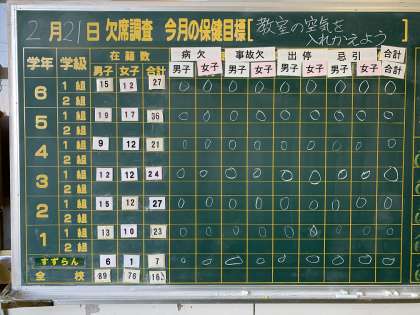 2月21日 欠席調査 今月の保健目標[教室の空気を
入れかえよう]
学年 学級 在籍数 病欠 事故欠 出停 忌引 合計
男子 女子 合計 男子 女子 男子 女子 男子 女子 男子 女子 合計
6 1組 15 12 27 0 0 0 0 0 0 0 0 0
2組
5 1組 19 17 36 0 0 0 0 0 0 0 0 0
2組
4 1組 9 12 21 0 0 0 0 0 0 0 0 0
2組
3 1組 12 12 24 0 0 0 0 0 0 0 0 0
2組
2 1組 15 12 27 0 0 0 0 0 0 0 0 0
2組
1 1組 13 10 23 0 0 0 0 0 0 0 0 0
2組
すずらん 6 1 7 0 0 0 0 0 0 0 0 0
全校 89 76